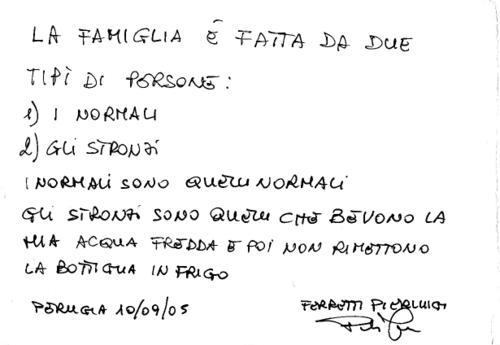 LA FAMIGLIA È FATTA DA DUE
TIPI DI PERSONE:
1) I NORMALI
2) GLI STRONZI
I NORMALI SONO QUELLI NORMALI
GLI STRONZI SONO QUELLI CHE BEVONO LA
MIA ACQUA FREDDA E POI NON RIMETTONO
LA BOTTIGLIA IN FRIGO
PERUGIA 10/09/05 FERRETTI PIERLUIGI